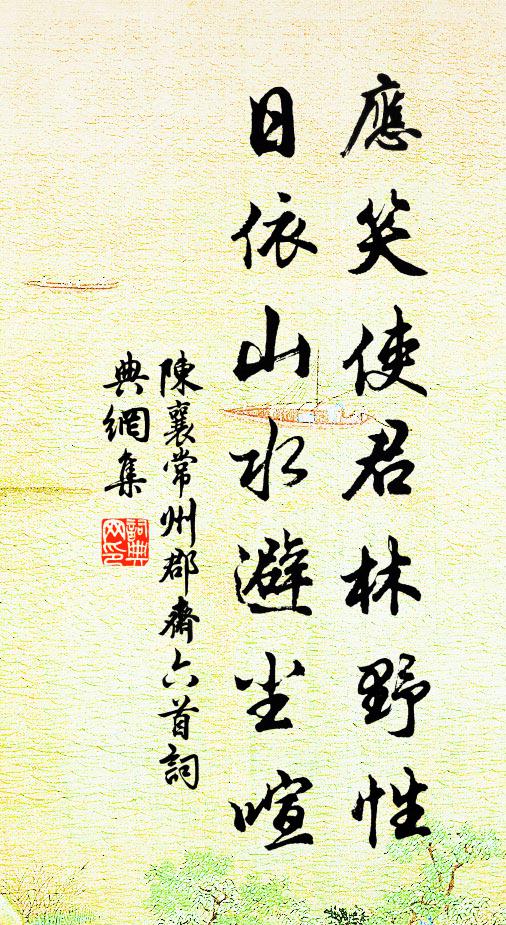 應笑使君林野性
日依山水避尘喧
陳襄常州郡齋六首詞
典網集
詞典
网印